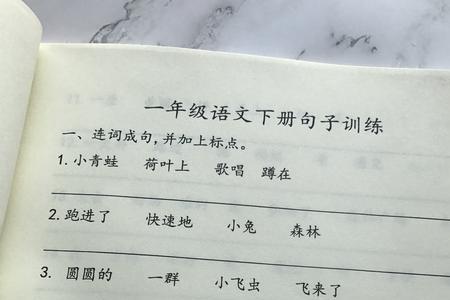 一年级语文下册句子训练
一、连词成句,并加上标点。
1.小青蛙 荷叶上 歌唱 蹲在
2.跑进了 快速地 小兔 森林
3. 圆圆的 一群 小飞虫 飞来了